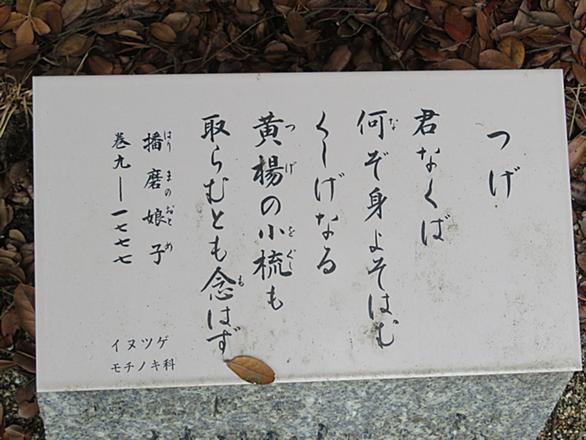 つげ
君なくば
何ぞ身よそはむ
くしげなる
黄楊の小梳も
取らむとも念はず
播磨娘子
巻九―一七七七
イヌツゲ
モチノキ科